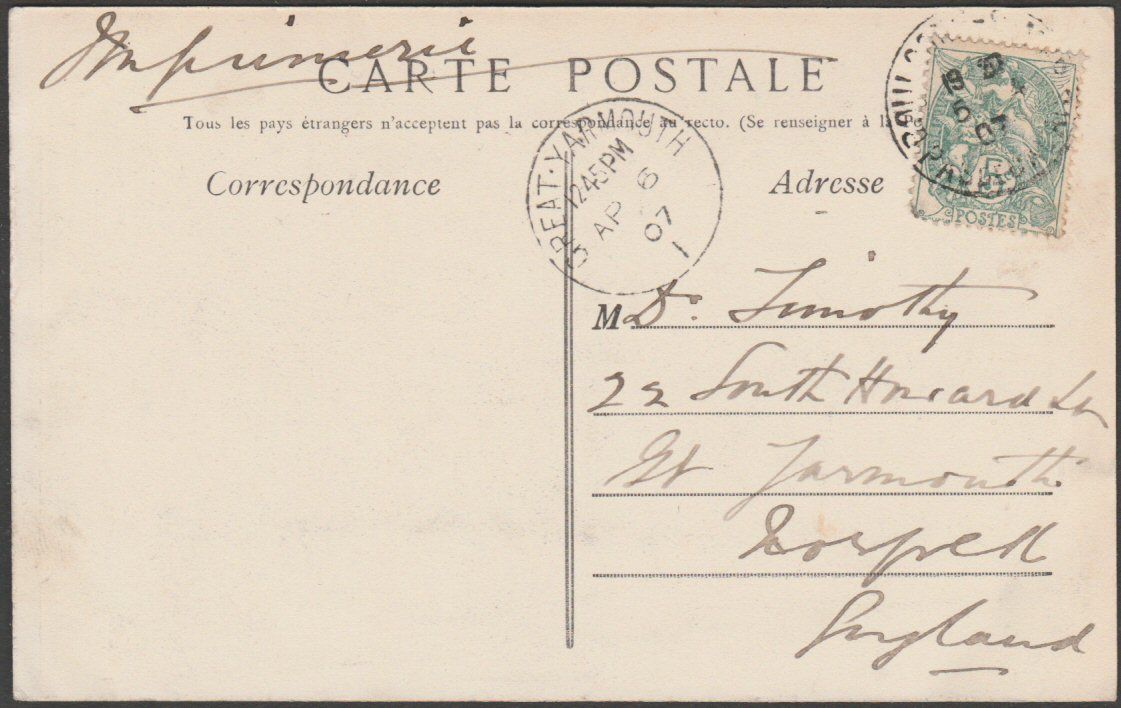 Imprimerie
CARTE POSTALE
Tous les pays étrangers n'acceptent pas la correspondance au recto. (Se renseigner à la
Correspondance
Adresse
GREAT·YARMOUTH
12.45PM
AP 6
07
1
POSTES
M Dr. Timothy
22 South
Gt Yarmouth
England